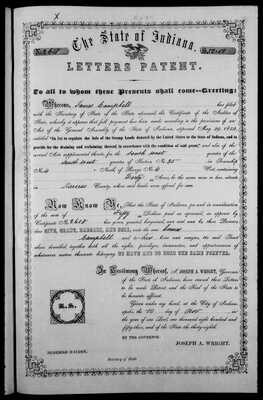 The State of Indiana,
LETTERS PATENT.
To all to whom these Presents shall come—Greeting:
Whereas, James Campbell has filed
with the Secretary of State of the State aforesaid the Certificate of the Auditor of
State, whereby it appears that full payment has been made according to the provisions of an
Act of the General Assembly of the State of Indiana, approved May 29, 1852,
entitled "An Act to regulate the Sale of the Swamp Lands donated by the United States to the State of Indiana, and to
provide for the draining and reclaiming thereof, in accordance with the condition of said grant;" and also of the
several Acts supplemental thereto for the South west quarter of the
South west quarter of Section No. 35 in Township
No. of Range No. West containing
Forty Acres, be the same more or less, situate
in County, which said tracts were offered for sale
Now Know Ye, That the State of Indiana for and in consideration
of the sum of Fifty Dollars paid as aforesaid, as appears by
Certificate No. 2618 has given, granted, bargained and sold and by these Presents
does GIVE, GRANT, BARGAIN, AND SELL, unto the said James
Campbell and to his heirs and assigns, the said Tract
above described together with all the rights, privileges, immunities, and appurtenances of
whatsoever nature thereunto belonging TO HAVE AND TO HOLD THE SAME FOREVER.
In Testimony Whereof, I, JOSEPH A. WRIGHT, Governor
of the State of Indiana, have caused these Letters
to be made Patent and the Seal of the State to
be hereunto affixed.
Given under my hand, at the City of Indianapolis, the day of Nov in
the year of our Lord, one thousand eight hundred and
fifty-three, and of the State the thirty-eighth.
L.S.
BY THE GOVERNOR:
JOSEPH A. WRIGHT.
NEHEMIAH HAYDEN,
Secretary of State